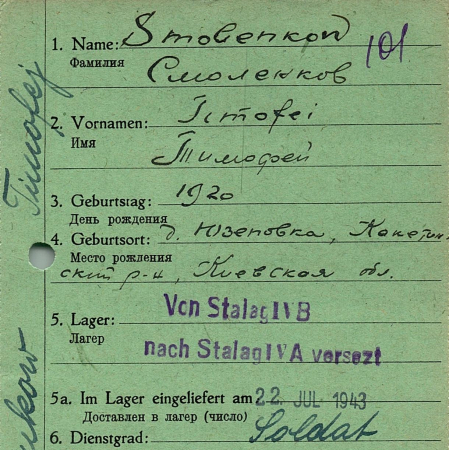 1. Name: Smolenkow 101
Фамилия Смоленков
2. Vornamen: Timofei
Имя Тимофей
3. Geburtstag: 1920
День рождения
4. Geburtsort: д. Юзеповка,
Место рождения
ский р-н, Киевская обл.
5. Lager: Von Stalag IV B
Лагер nach Stalag IV A versezt
5a. Im Lager eingeliefert am 22. JUL 1943
Доставлен в лагер (число)
6. Dienstgrad: Soldat
Timofej
nkow